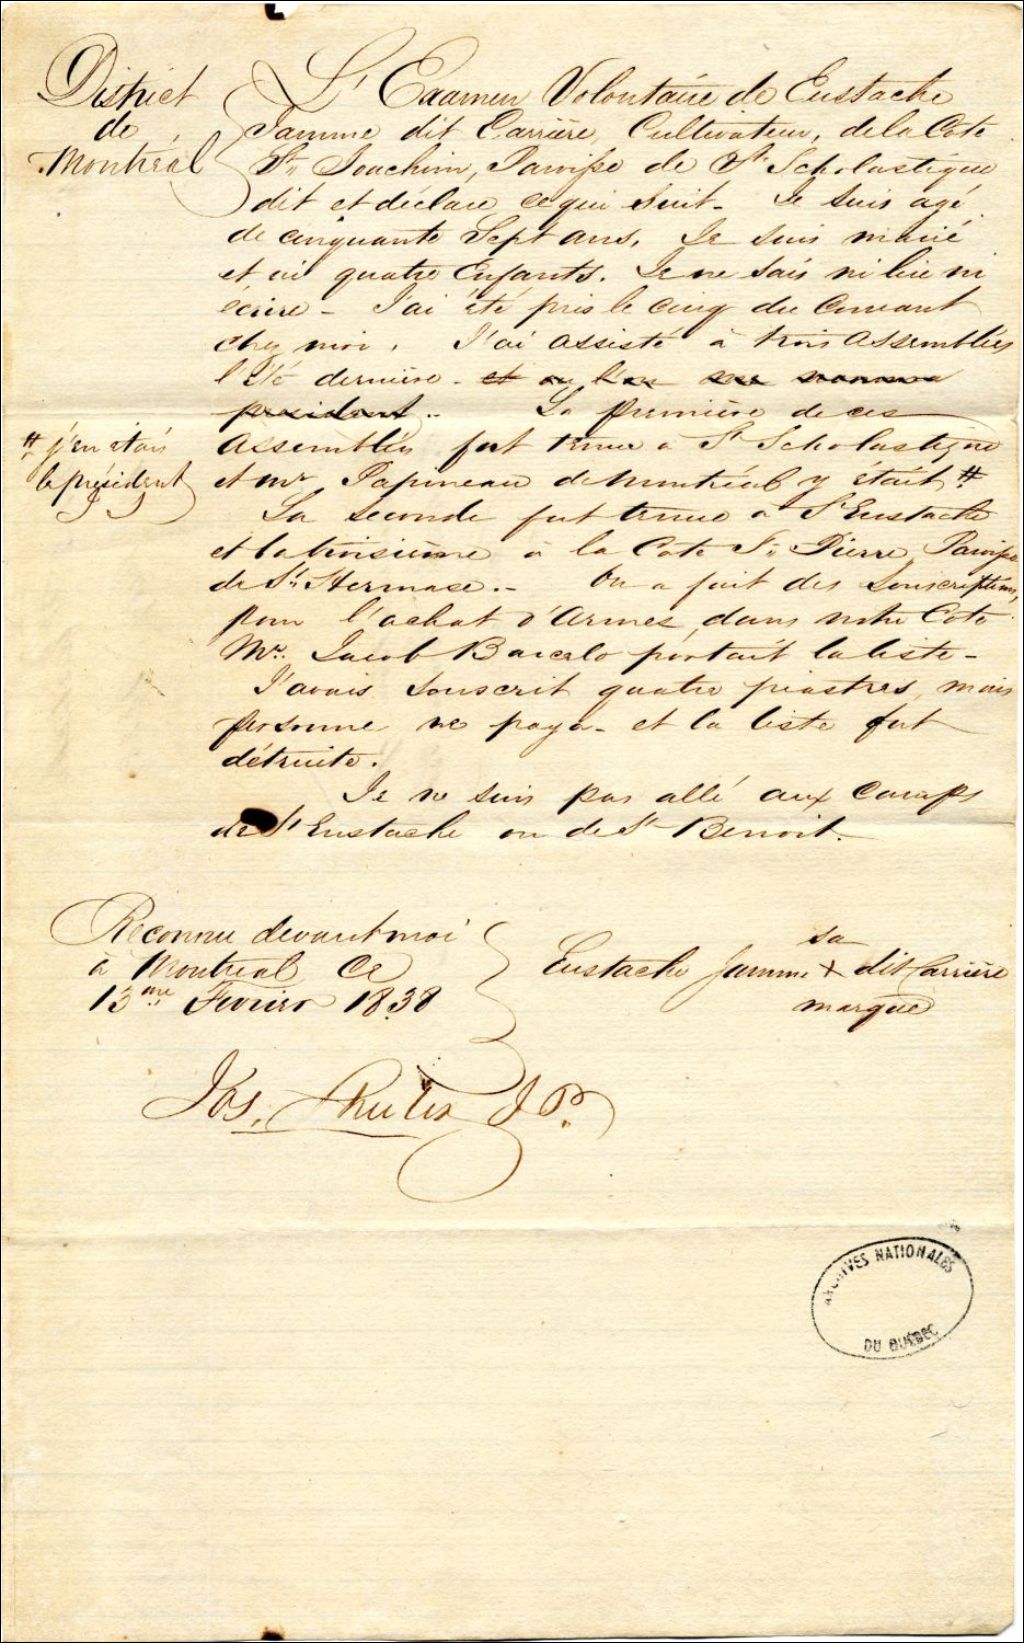 District
de
Montréal
L'Examen Volontaire de Eustache
Jamme dit Carrière, Cultivateur, de la Cote
St. Joachim, Paroisse de Ste Scholastique
dit et déclare ce qui suit - Je suis agé
de cinquante Sept ans. Je suis marié
et ai quatre Enfants. Je ne sais ni lire ni
écrire - J'ai été pris le cinq du Courant
chez moi. J'ai assisté à trois Assemblées
l'Eté dernière - et
president. - La première de ces
Assemblées fut tenue a St Scholastique
et Mr Papineau de Montréal y était #
# j'en étais
le président
La seconde fut tenue a St Eustache
et la troisième à la Cote St. Pierre, Paroisse
de St. Hermase. - On a fait des Souscriptions,
pour l'achat d'Armes, dans notre Cote
Mr. Jacob Barcelo portait la liste -
J'avais souscrit quatre piastres, mais
personne ne paya - et la liste fut
détruite.
Je ne suis pas allé aux Camps
de St Eustache ou de St Benoit.
Reconnu devant moi
à Montreal Ce
13me Fevrier 1838
sa
Eustache Jamme + dit Carrière
marque
Jos. J P.
ARCHIVES NATIONALES
DU QUÉBEC